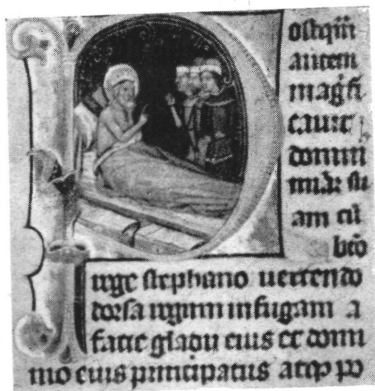 Postq̄m
autem
magn̄fi
cauit
domin
miā su
am cū
bt̄o
rege stephano uertendo
dorsa regum in fugam a
facie gladii eius et domi
nio eius principatus atq̄ po